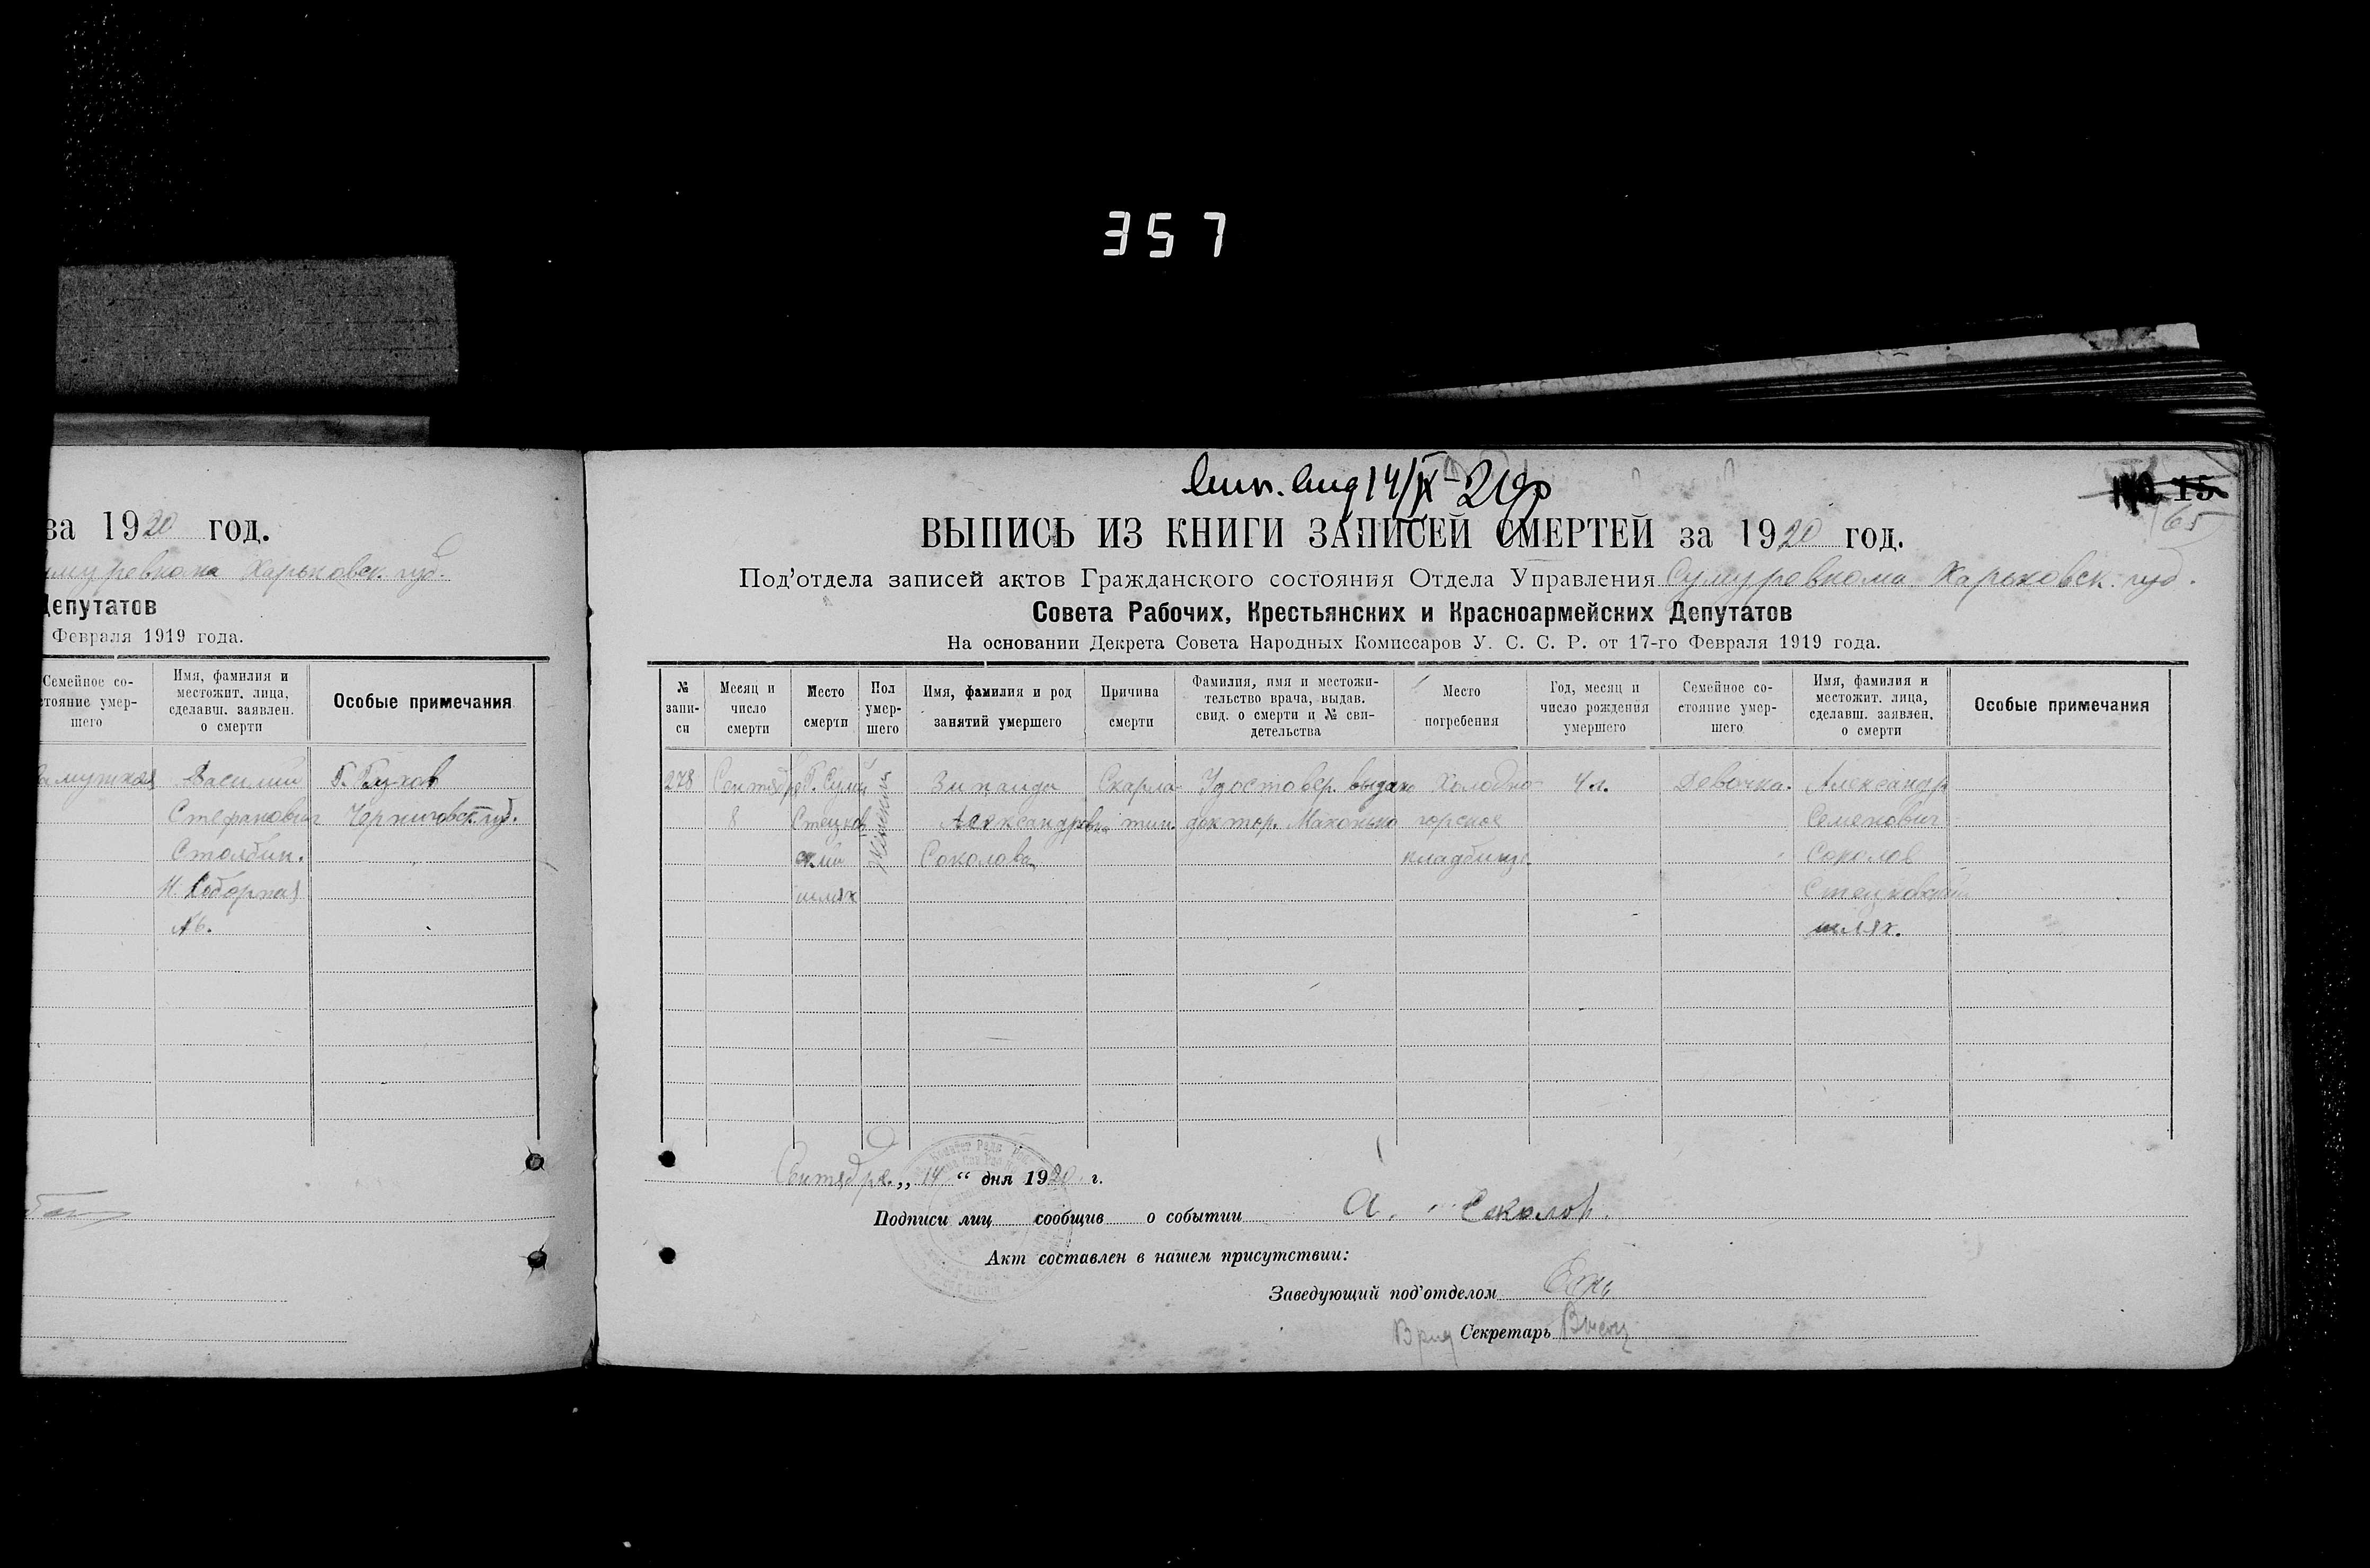 357
за 1920 год.
Харьковск. губ.
Депутатов
Февраля 1919 года.
Семейное со-
стояние умер-
шего
Имя, фамилия и
местожит. лица,
сделавш. заявлен.
о смерти
Особые примечания
Замужняя Василий Г. Глухов
Стефанович Черниговск. губ.
Столбин.
Н. Соборная
№ 6.
14/IX
15
65
ВЫПИСЬ ИЗ КНИГИ ЗАПИСЕЙ СМЕРТЕЙ за 1920 год.
Под'отдела записей актов Гражданского состояния Отдела Управления Сумуревкома Харьковск. губ.
Совета Рабочих, Крестьянских и Красноармейских Депутатов
На основании Декрета Совета Народных Комиссаров У. С. С. Р. от 17-го Февраля 1919 года.
№
запи-
си
Месяц и
число
смерти
Место
смерти
Пол
умер-
шего
Имя, фамилия и род
занятий умершего
Причина
смерти
Фамилия, имя и местожи-
тельство врача, выдав.
свид. о смерти и № сви-
детельства
Место
погребения
Год, месяц и
число рождения
умершего
Семейное со-
стояние умер-
шего
Имя, фамилия и
местожит. лица,
сделавш. заявлен.
о смерти
Особые примечания
278 Сентября Г. Сумы Женский Зинаида Скарла- Удостовер. выдано Холодно- 4 л. Девочка. Александр
8 Стецков Александровна тин. доктор. Маконько горское Семенович
ский Соколова кладбище Соколов
шлях Стецковский
шлях.
Сентября „ 14 “ дня 1920 г.
Подписи лиц сообщив о событии А. Соколов.
Акт составлен в нашем присутствии:
Заведующий под'отделом
Врид Секретарь